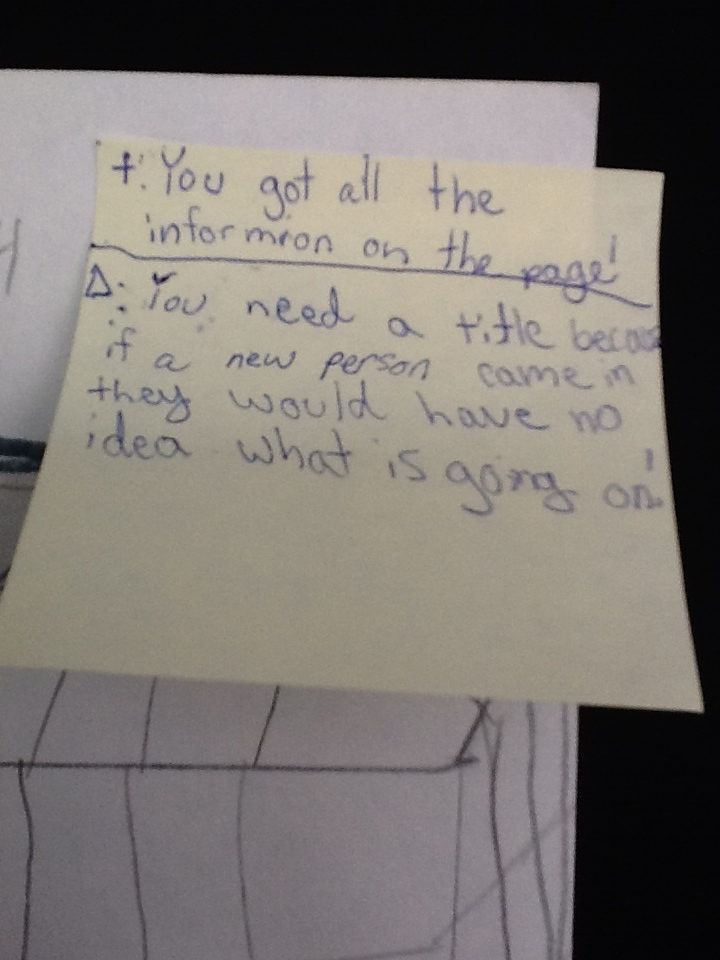 +: You got all the
informion on the page!
Δ: You need a title becaus
if a new person came in
they would have no
idea what is going on!